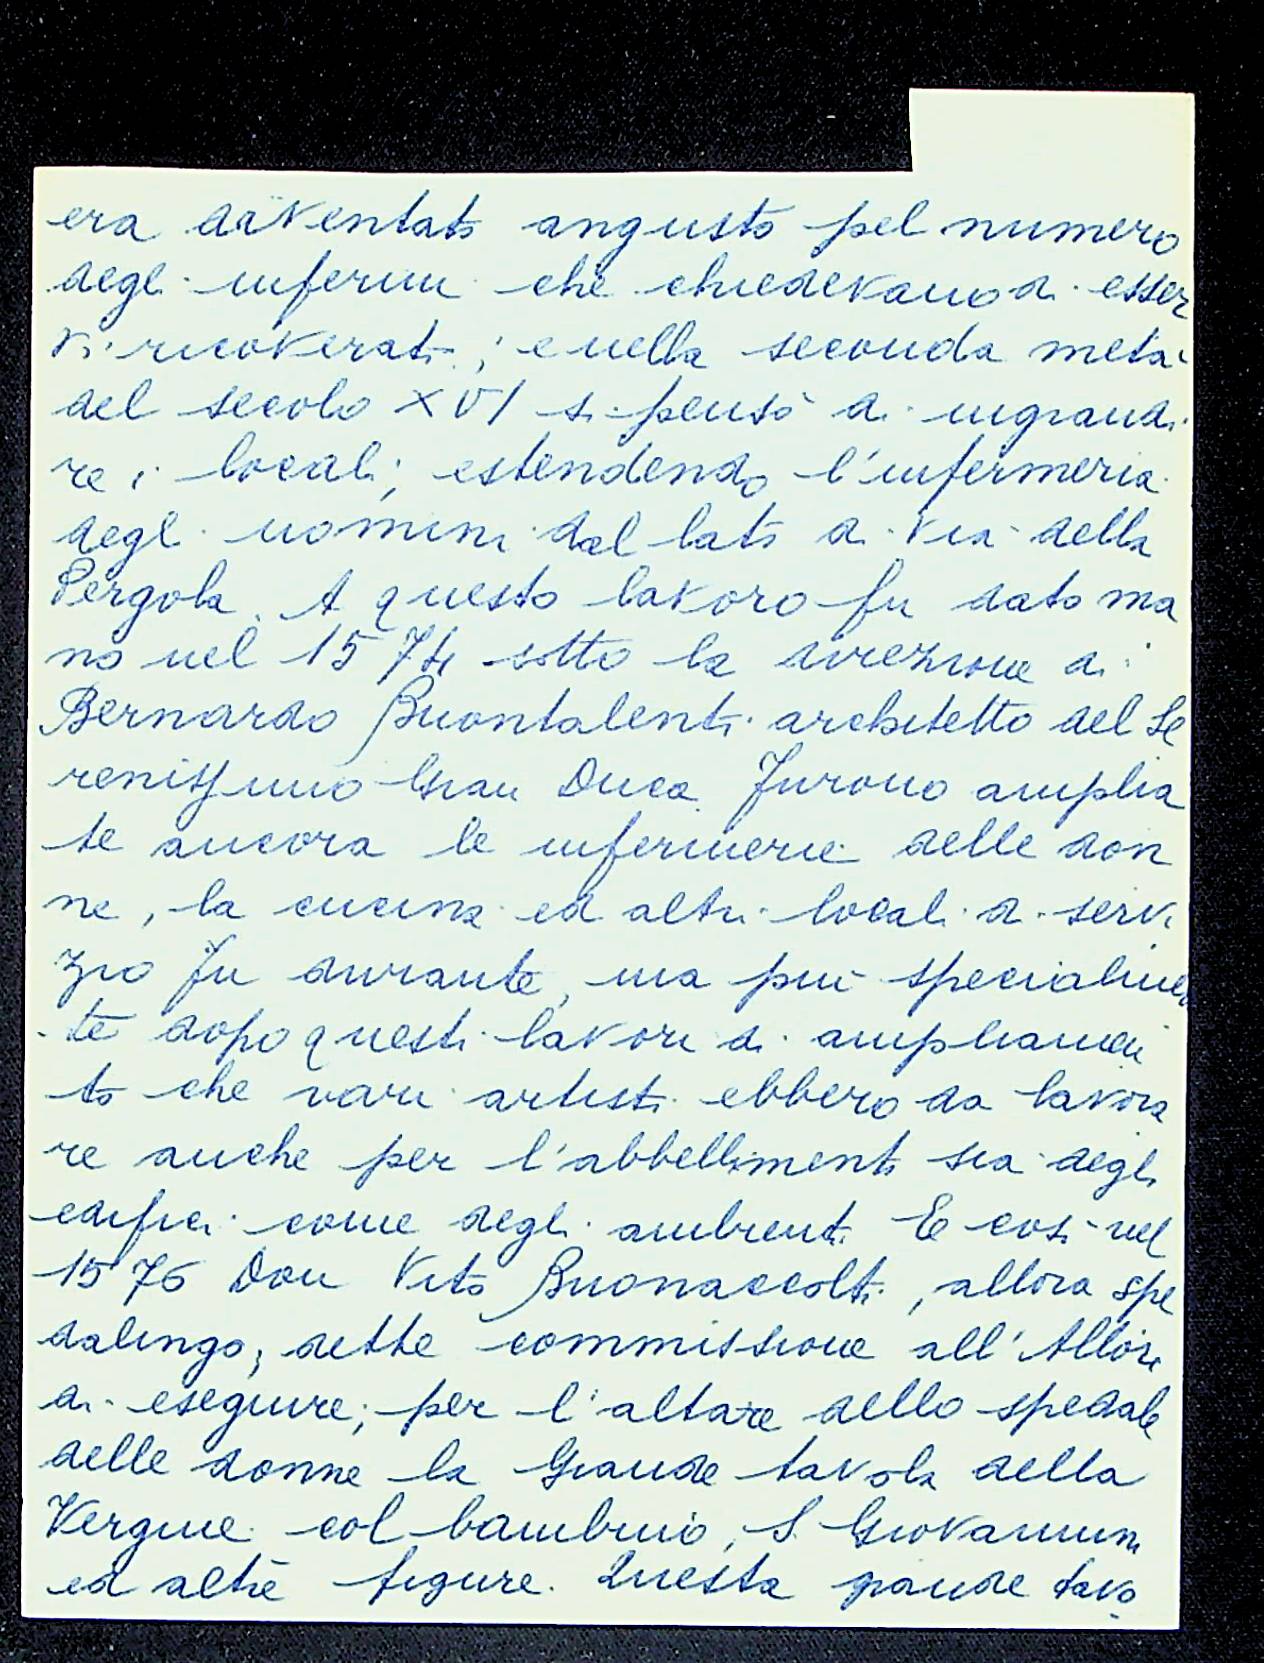 era diventato angusto pel numero
degli infermi che chiedevano di esser
vi ricoverati; e nella seconda metà
del secolo XVI si pensò di ingrandi
re i locali, estendendo l'infermeria
degli uomini dal lato di Via della
Pergola. A questo lavoro fu dato ma
no nel 1574 sotto la direzione di
Bernardo Buontalenti architetto del Se
renissimo Gran Duca. Furono amplia
te ancora le infermerie delle don
ne, la cucina ed altri locali di servi
zio Fu durante, ma più specialmen
te dopo questi lavori di ampliamen
to che varii artisti ebbero da lavora
re anche per l'abbellimento sia degli
edifici come degli ambienti. E così nel
1576 Don Vito Buonaccolti, allora spe
dalingo, dette commissione all'Allori
di eseguire, per l'altare dello spedale
delle donne la Grande tavola della
Vergine col bambino, S. Giovannin
ed altre figure. Questa grande tavo